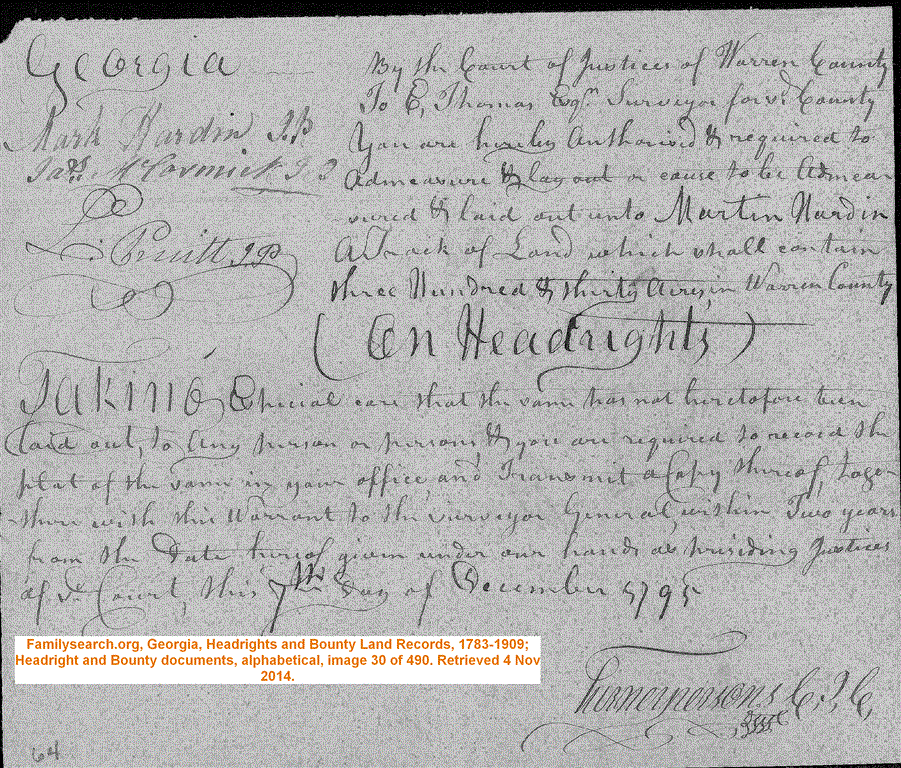 Georgia
Mark Hardin J.P.
Jas. McCormick J P
L. Pruitt JP
By the Court of Justices of Warren County
To E, Thomas Esqr. Surveyor for sd. County
You are hereby Authorised & required to
Admeasure & lay out or cause to be Admea
sured & laid out unto Martin Hardin
A Track of Land which shall contain
three Hundred & thirty Acres, in Warren County
(On Headrights)
Taking Especial care that the same has not heretofore been
Laid out, to Any person or persons, & you are required to record the
plat of the same in your office, and Transmit a Copy thereof, toge-
-there with this Warrant to the Surveyor General, within Two years
from the Date hereof given under our hands as presiding Justices
of sd. Court, this 7th Day of December 1795
Turner persons C, I, C,
64
Familysearch.org, Georgia, Headrights and Bounty Land Records, 1783-1909;
Headright and Bounty documents, alphabetical, image 30 of 490. Retrieved 4 Nov
2014.